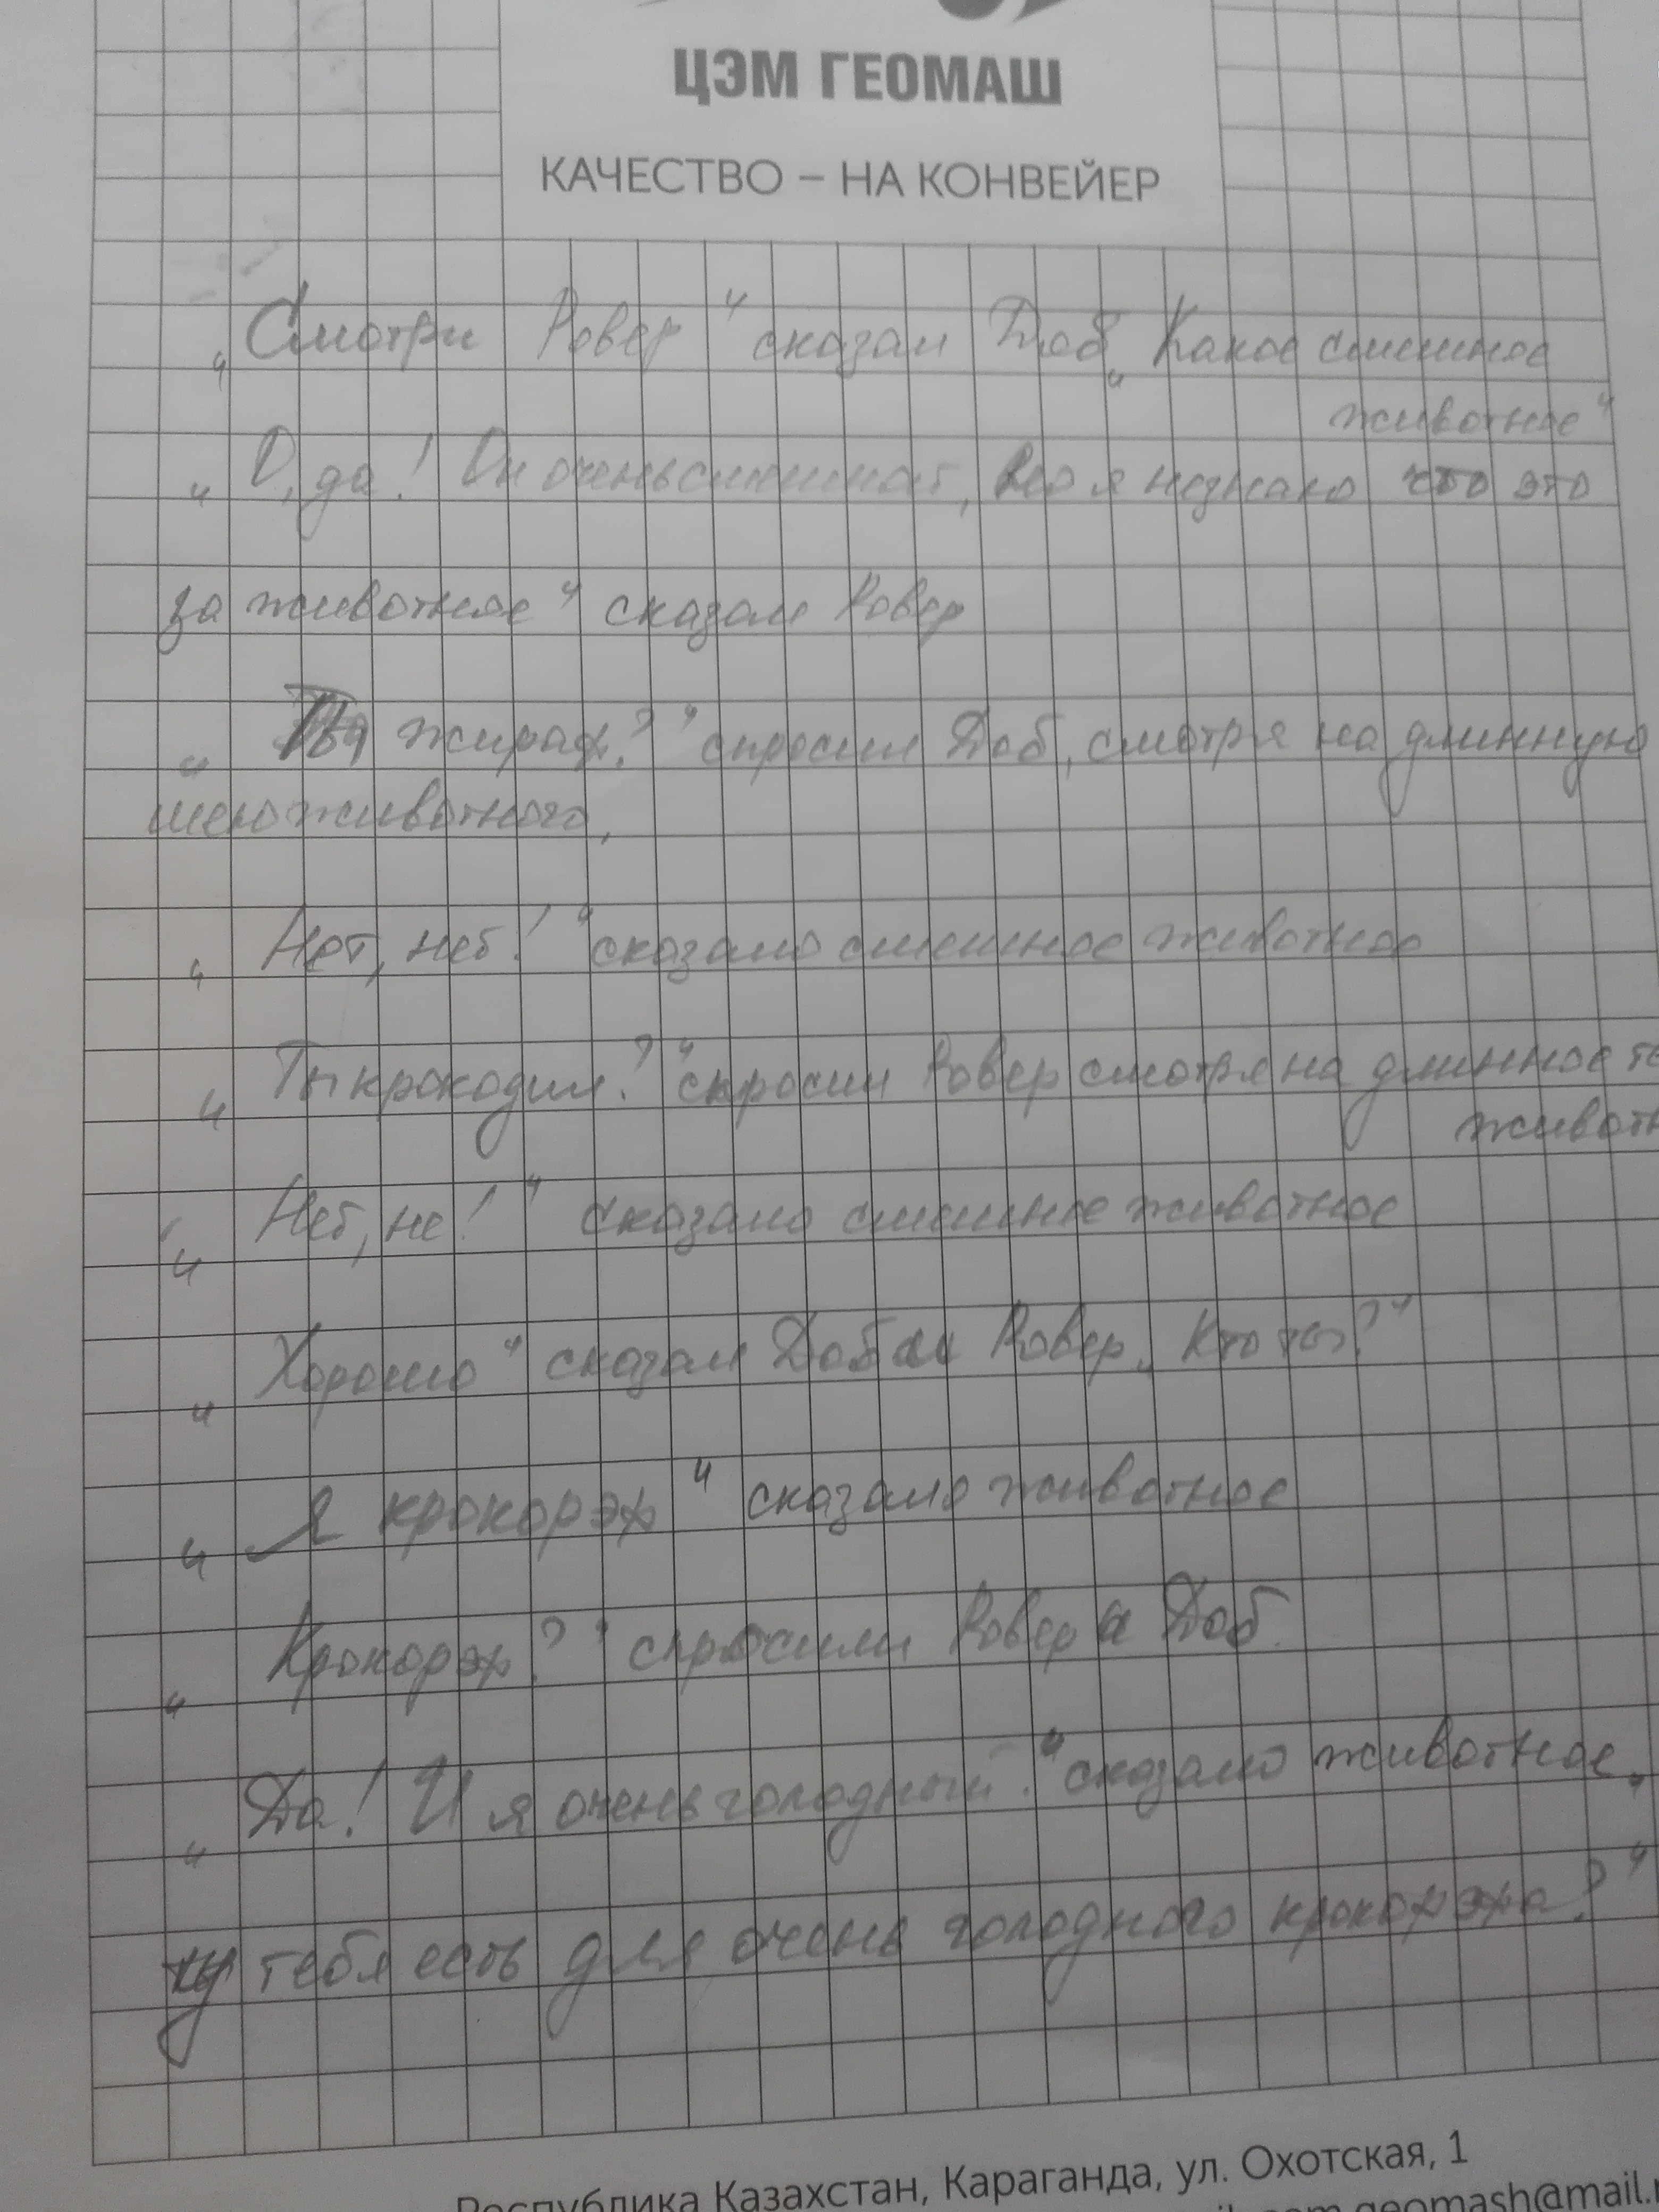 ЦЭМ ГЕОМАШ
КАЧЕСТВО – НА КОНВЕЙЕР
„Смотри Ровер“ сказал Доб „Какое смешное
животное“
„О, да! Он очень смешной, но я незнаю что это
за животное“ сказал Ровер
„Ты жираф?“ спросил Доб, смотря на длинную
шею животного,
„Нет, нет!“ сказало смешное животное
„Ты крокодил?“ спросил Ровер смотря на длинное
животн
„Нет, не!“ сказало смешное животное
„Хорошо“ сказал Доб и Ровер „Кто ты?“
„Я крокорэф“ сказало животное
„Крокорэф?“ спросили Ровер а Доб.
„Да! И я очень голодный.“ сказало животное „
у тебя есть для очень голодного крокорэфа?“
Республика Казахстан, Караганда, ул. Охотская, 1
geomash@mail.